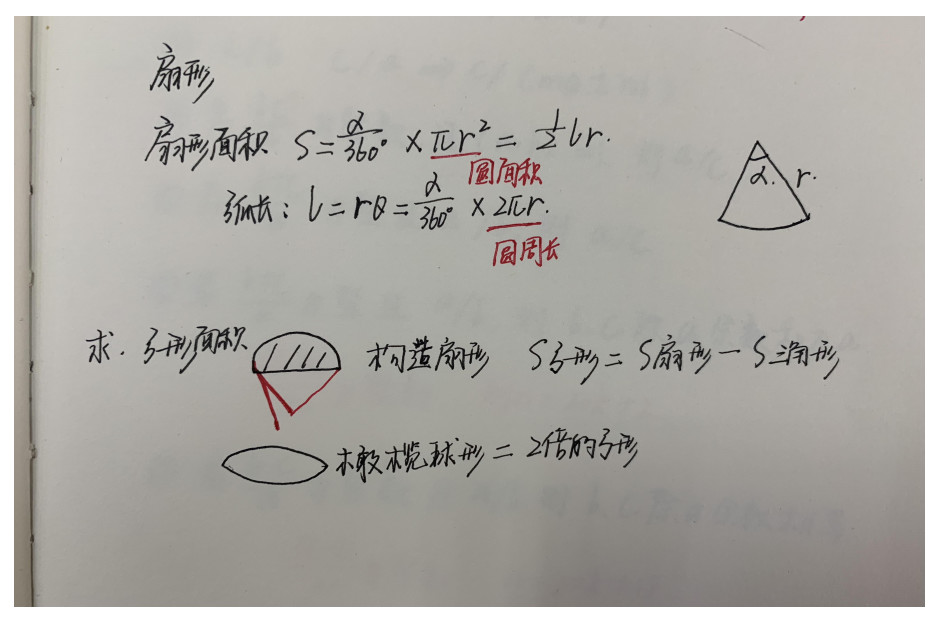 扇形
扇形面积 S=α/360° × πr² = 1/2 lr.
圆面积
弧长: l=rθ=α/360° × 2πr.
圆周长
α. r.
求. 弓形面积 构造扇形 S弓形=S扇形-S三角形
橄榄球形=2倍的弓形